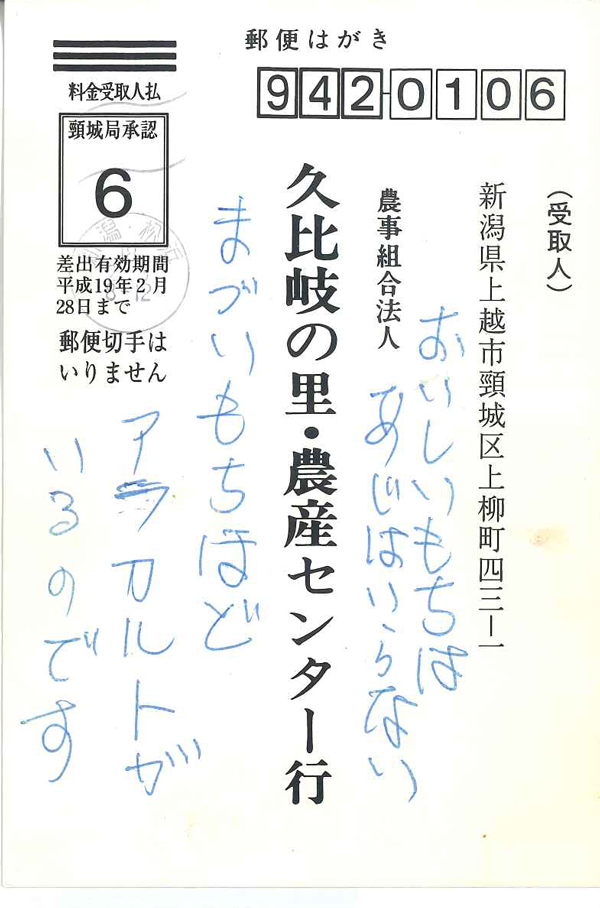 郵便はがき
942-0106
料金受取人払
頸城局承認
6
差出有効期間
平成19年2月
28日まで
郵便切手は
いりません
(受取人)
新潟県上越市頸城区上柳町四三ー一
農事組合法人
久比岐の里・農産センター行
おいしいもちは
あじはいらない
まづいもちほど
アラカルトが
いるのです